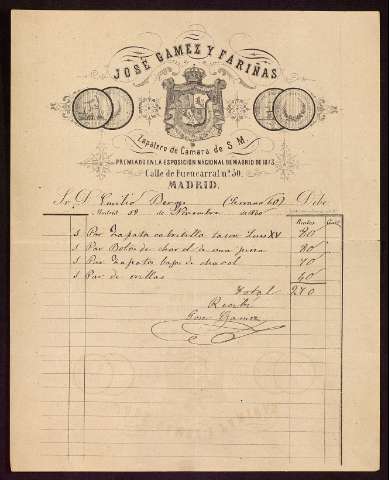 JOSÉ GAMEZ Y FARIÑAS
Zapatero de Cámara de S. M.
PREMIADO EN LA ESPOSICIÓN NACIONAL DE MADRID DE 1873
Calle de Fuencarral nº 50.
MADRID.
Sr. D. Emilio (Serrano 60) Debe
Madrid de Noviembre de 1880
1 Par Zapato cabritilla tacon Luis XV 80
1 Par de charol de una pieza 80
1 Par Zapatos bajos de charol 70
1 Par de 40
Total 270
Recibí
Jose Gamez